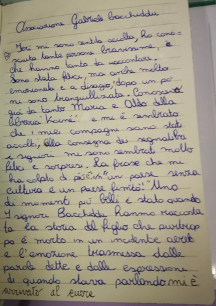 Associazione Gabriele Bacchiddu
Ieri mi sono sentita accolta, ho cono-
sciuto tante persone bravissime,
che hanno tanto da raccontare.
Sono stata felice, ma anche molto
emozionata e a disagio, dopo un po'
mi sono tranquillizzata. Conoscevo
già da tanto Maria e Aldo della
e mi è sembrato
che i miei compagni siano stati
accolti, alla consegna dei segnalibri
i signori mi sono sembrati molto
felici e sorpresi. La frase che mi
ha colpito di più è: "un paese senza
cultura è un paese finito". Uno
dei momenti più belli è stato quando
I signori Bacchiddu hanno racconta
to la storia del figlio che purtrop
po è morto in un incidente aereo
e l'emozione trasmessa dalle
parole dette e dalle espressioni
di quando stava parlando mi è
arrivato al cuore